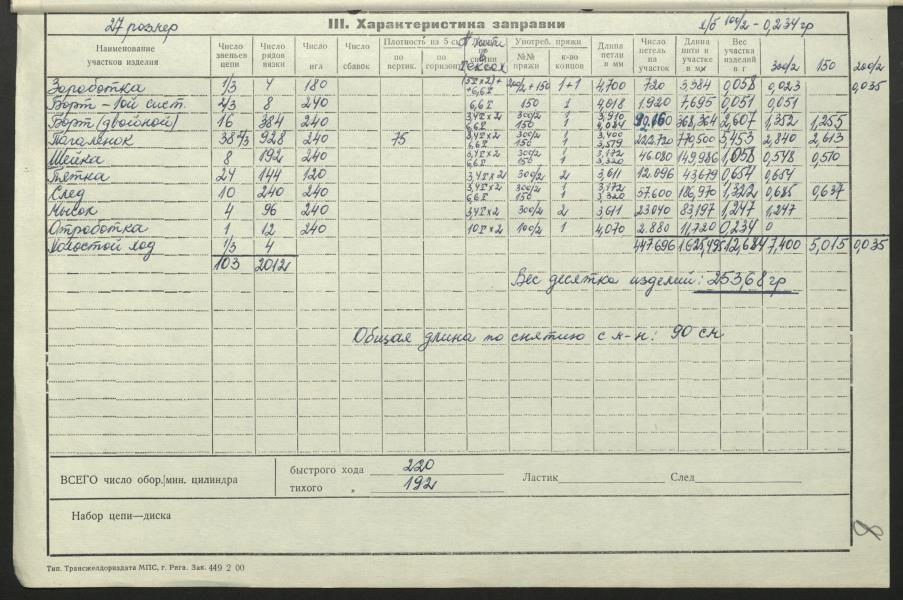 27 размер III. Характеристика заправки х/б 100/2 - 0,234 гр
Наименование участков изделия | Число звеньев цепи | Число рядов вязки | Число игл | Число сбавок | Плотность из 5 см: по вертик. | по горизонт. | Употреб. пряжи: №№ пряжи | к-во концов | Длина петли в мм | Число петель на участок | Длина нити в участке в мм | Вес участка изделий в г | 300/2 | 150 | 200/2
Заработка 1/3 4 180 200/2+150 1+1 4,700 720 3.384 0,058 0,023 0,035
Борт - 1ой сист. 2/3 8 240 6,6 150 1 4,018 1.920 7,695 0,051 0,051
Борт (двойной) 16 384 240 3,4 x 2 300/2 1 3,910 92.160 368,364 2,607 1,352 1,255
6,6 150 1 4,084
Паголенок 38 2/3 928 240 75 3,4 x 2 300/2 1 3,400 222.720 770,500 5,453 2,840 2,613
6,6 150 1 3,519
Шейка 8 192 240 3,4 x 2 300/2 1 3,172 46.080 149,986 1,058 0,548 0,510
6,6 150 1 3,320
Пятка 24 144 120 3,4 x 2 300/2 2 3,611 12.096 43679 0,654 0,654
След 10 240 240 3,4 x 2 300/2 1 3,172 57.600 186,970 1,322 0,685 0,637
6,6 150 1 3,320
Мысок 4 96 240 3,4 x 2 300/2 2 3,611 23040 83197 1,247 1,247
Отработка 1 12 240 10 x 2 100/2 1 4,070 2.880 11,720 0,234 0
Холостой ход 1/3 4 447696 12,684 7,400 5,015 0,035
103 2012
Вес десятка изделий: 253,68 гр
Общая длина по снятию с м-н: 90 см
ВСЕГО число обор./мин. цилиндра быстрого хода 220
тихого „ 192 Ластик След
Набор цепи—диска
8
Тип. Трансжелдориздата МПС, г. Рига. Зак. 449 2 00